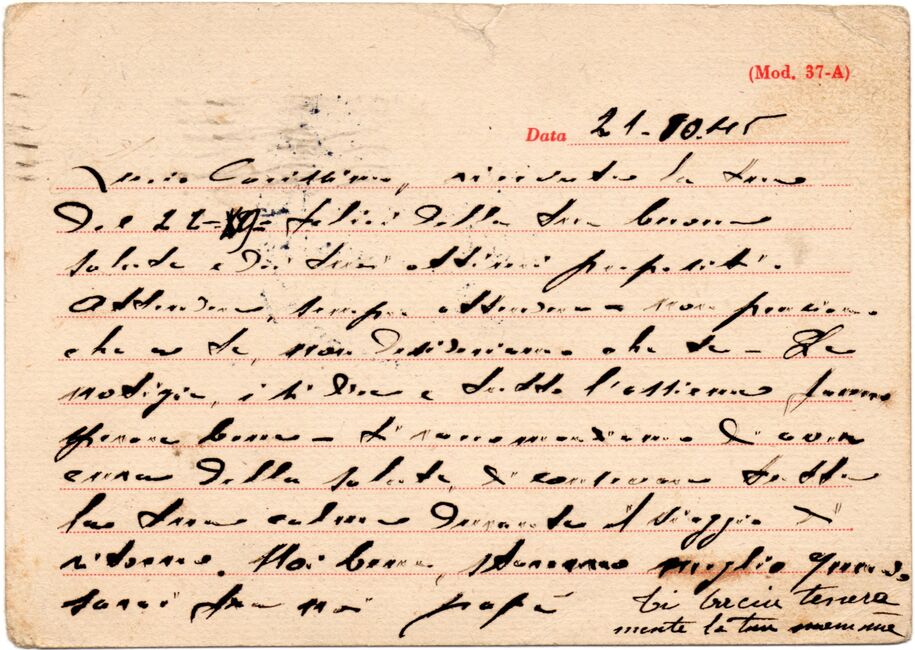 (Mod. 37-A)
Data 21-10.45
Carissimo, ricevuta la tua
del 22-9- felici della tua buona
salute e dei tuoi ottimi propositi.
Attendiamo, sempre attendiamo - non pensiamo
che a te, non desideriamo che te - Le
notizie, i si dice e tutto l'assieme, fanno
sperare bene - Ti raccomandiamo d'aver
cura della salute, di conservare tutta
la tua calma durante il viaggio di
ritorno. Noi bene, staremo meglio quando
sarai fra noi papà ti bacia tenera
mente la tua mamma